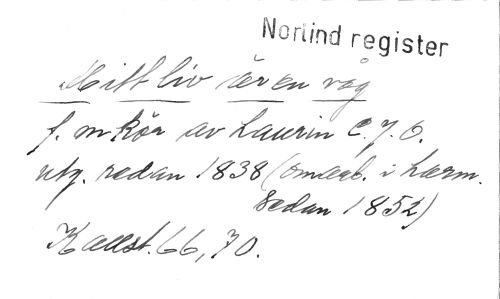 Norlind register
Mitt liv är en våg
f. mkör av Laurin C. J. O.
utg. redan 1838 (omarb. i harm.
sedan 1852)
Kallst. 66, 70.